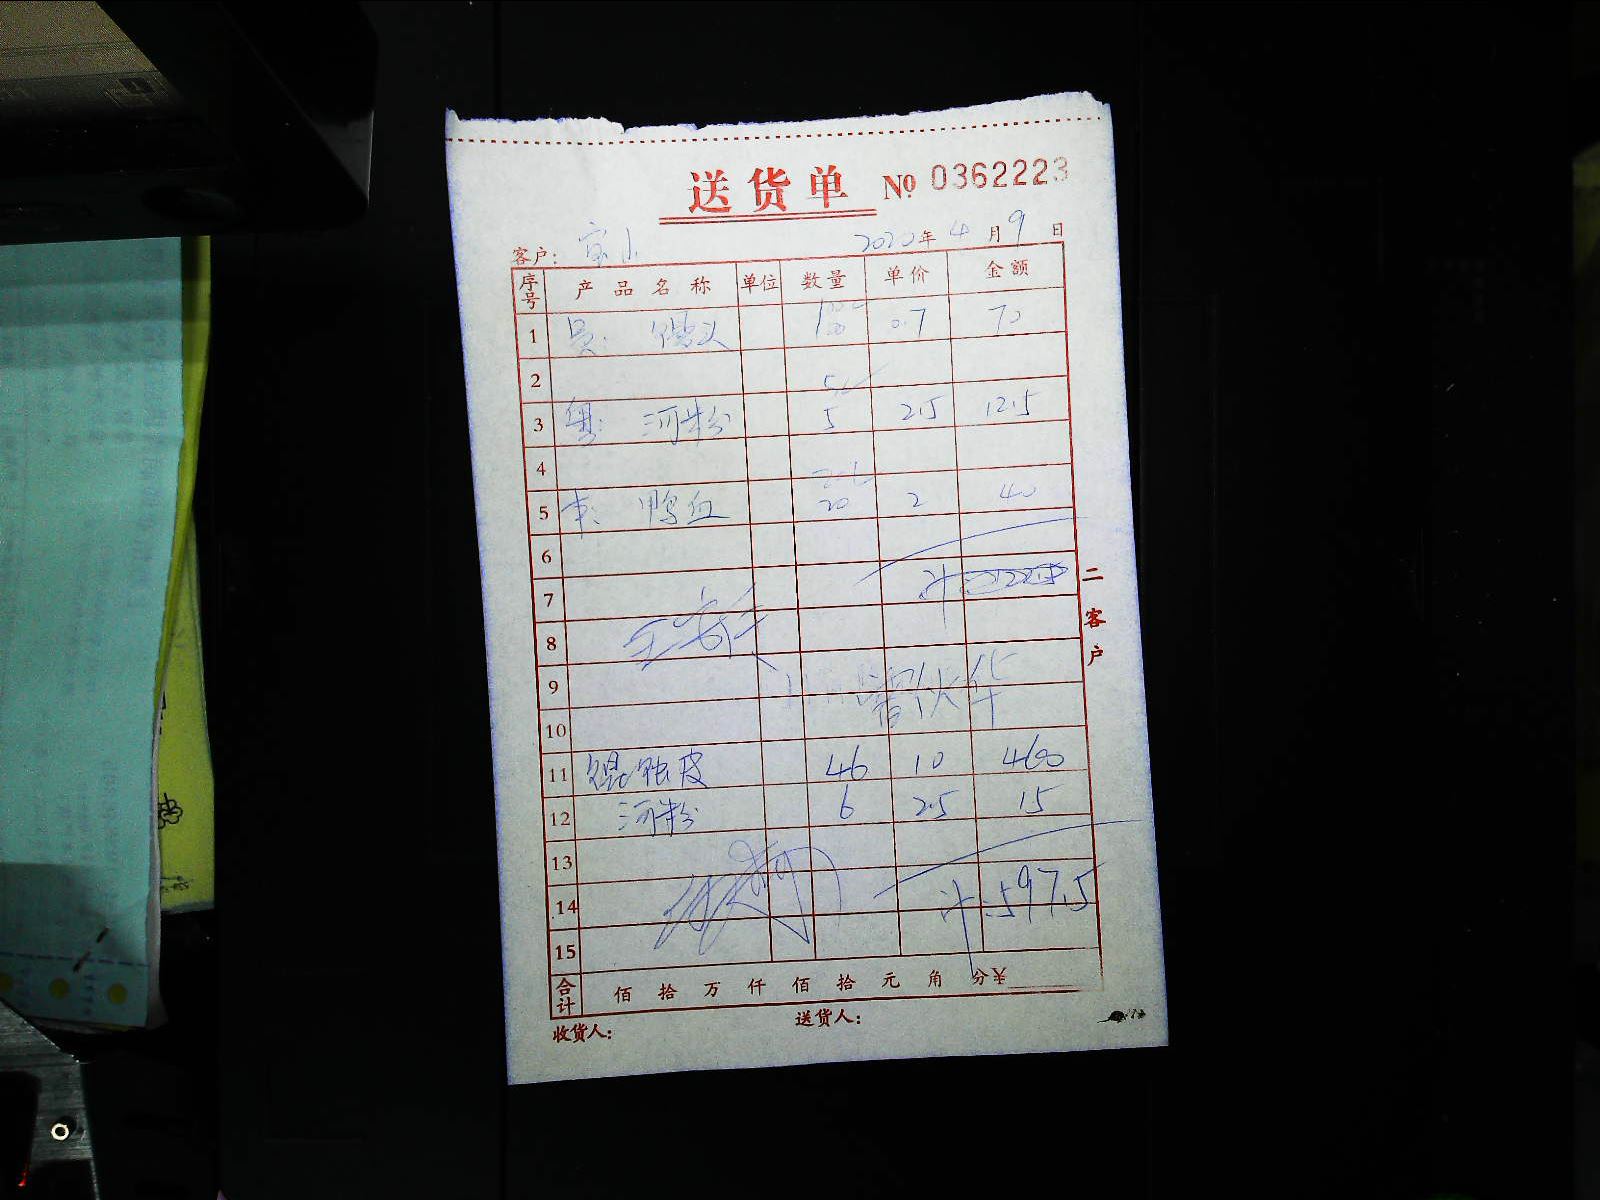 送货单 № 0362223
客户: 宝小 2020年 4月 9日
序号 产品名称 单位 数量 单价 金额
1 吴: 馒头 100 0.7 70
2
3 粤: 河粉 5 2.5 12.5
4
5 鸭血 20 2 40
6
7 计:
8
9
10
11 馄饨皮 46 10 460
12 河粉 6 2.5 15
13
14 计:597.5
15
合计 佰 拾 万 仟 佰 拾 元 角 分¥
收货人: 送货人:
二 客户